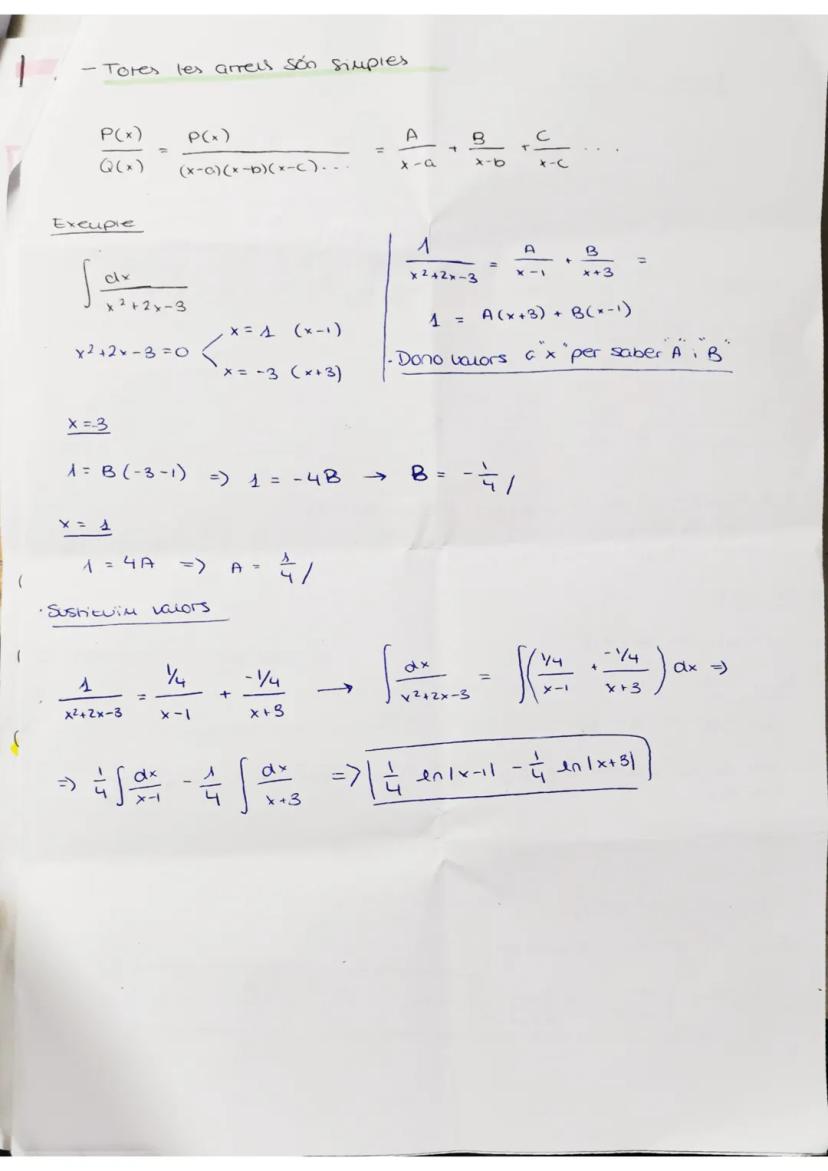 - Totes les arrels són simples
P(x)/Q(x) = P(x)/((x-a)(x-b)(x-c)...) = A/(x-a) + B/(x-b) + C/(x-c) ...
Exemple
∫ dx/(x²+2x-3)
x²+2x-3=0 < x=1 (x-1)
x=-3 (x+3)
1/(x²+2x-3) = A/(x-1) + B/(x+3) =
1 = A(x+3) + B(x-1)
· Dono valors a "x" per saber "A" i "B"
x=-3
1 = B(-3-1) => 1 = -4B → B = -1/4 /
x = 1
1 = 4A => A = 1/4 /
· Sustituïm valors
1/(x²+2x-3) = (1/4)/(x-1) + (-1/4)/(x+3) → ∫ dx/(x²+2x-3) = ∫((1/4)/(x-1) + (-1/4)/(x+3)) dx =>
=> 1/4 ∫ dx/(x-1) - 1/4 ∫ dx/(x+3) => 1/4 ln|x-1| - 1/4 ln|x+3|